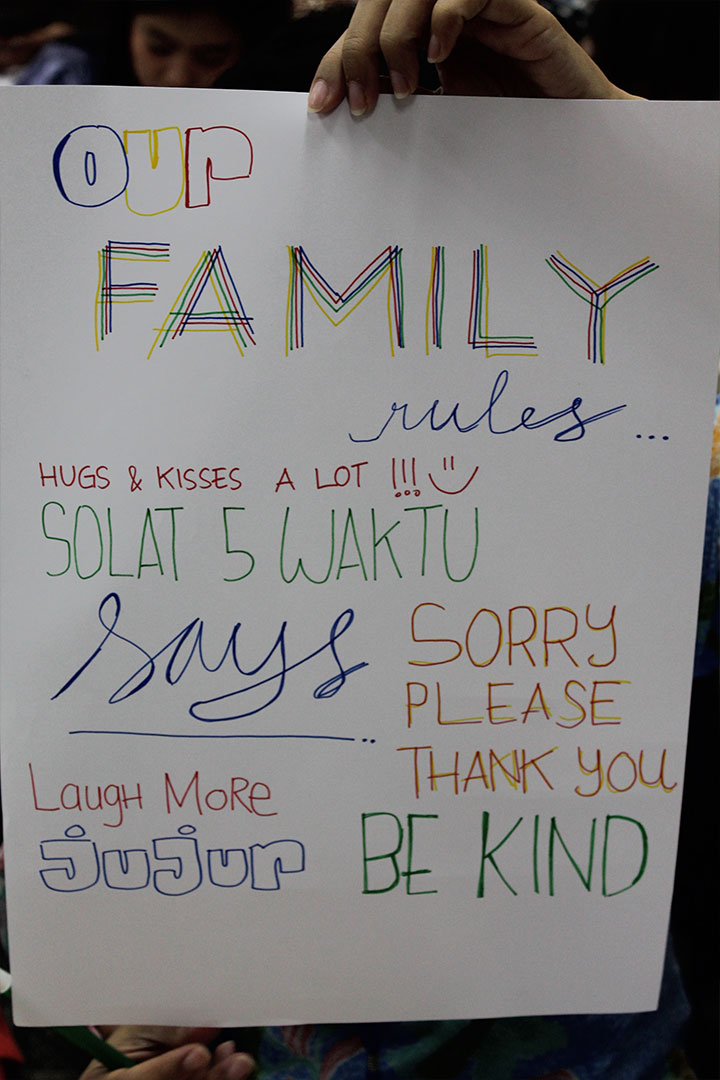 our
FAMILY
rules...
HUGS & KISSES A LOT !!!
SOLAT 5 WAKTU
says
SORRY
PLEASE
THANK YOU
Laugh More
jujur
BE KIND